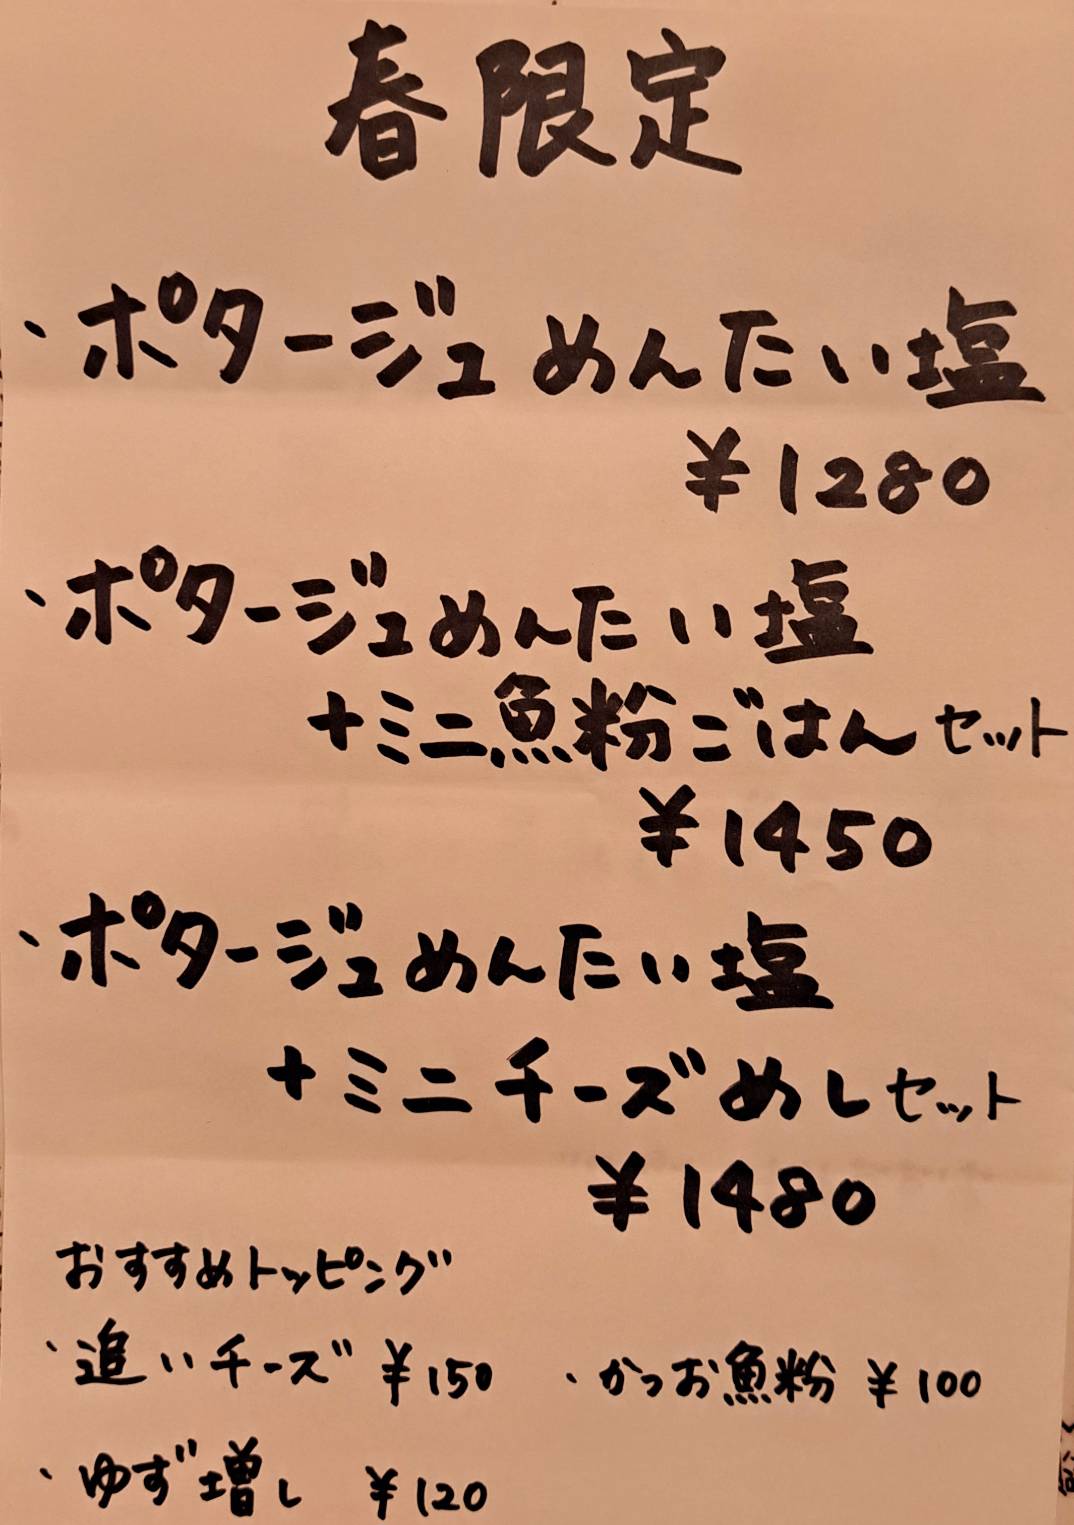 春限定
・ポタージュめんたい塩
¥1280
・ポタージュめんたい塩
+ミニ魚粉ごはんセット
¥1450
・ポタージュめんたい塩
+ミニチーズめしセット
¥1480
おすすめトッピング
・追いチーズ ¥150 ・かつお魚粉 ¥100
・ゆず増し ¥120